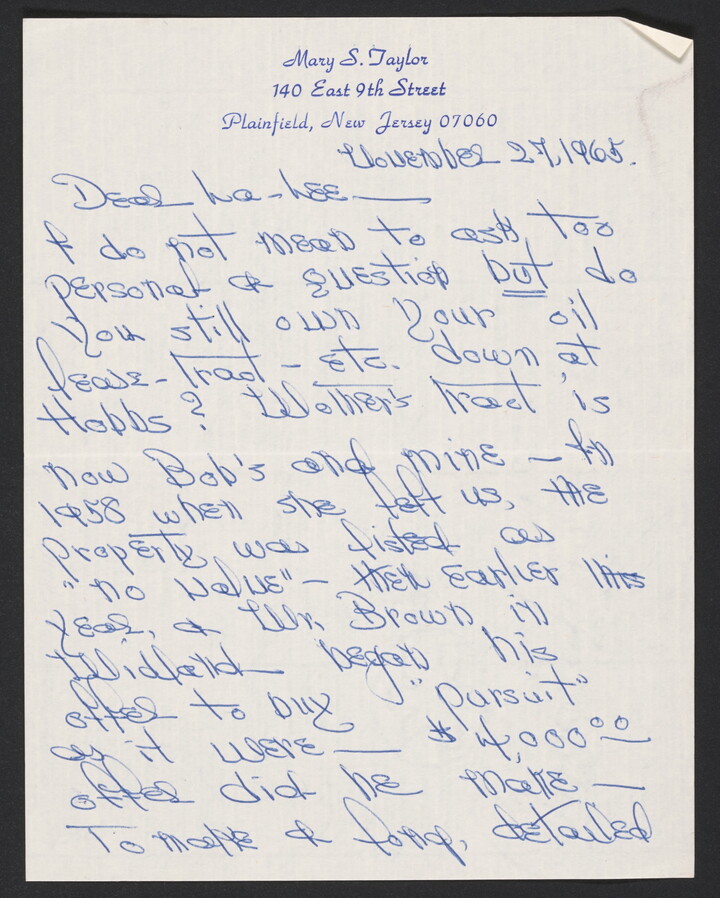 Mary S. Taylor
140 East 9th Street
Plainfield, New Jersey 07060
November 27, 1965.
Dear La-Lee —
I do not mean to ask too
personal a question but do
you still own your oil
lease - tract - etc. down at
Hobbs? Mother's tract is
now Bob's and mine — In
1958 when she left us, the
property was listed as
"no value" - then earlier this
year, a Mr. Brown in
Midland began his
offer to buy "pursuit"
as it were — $4,000⁰⁰
offer did he make —
To make a long, detailed